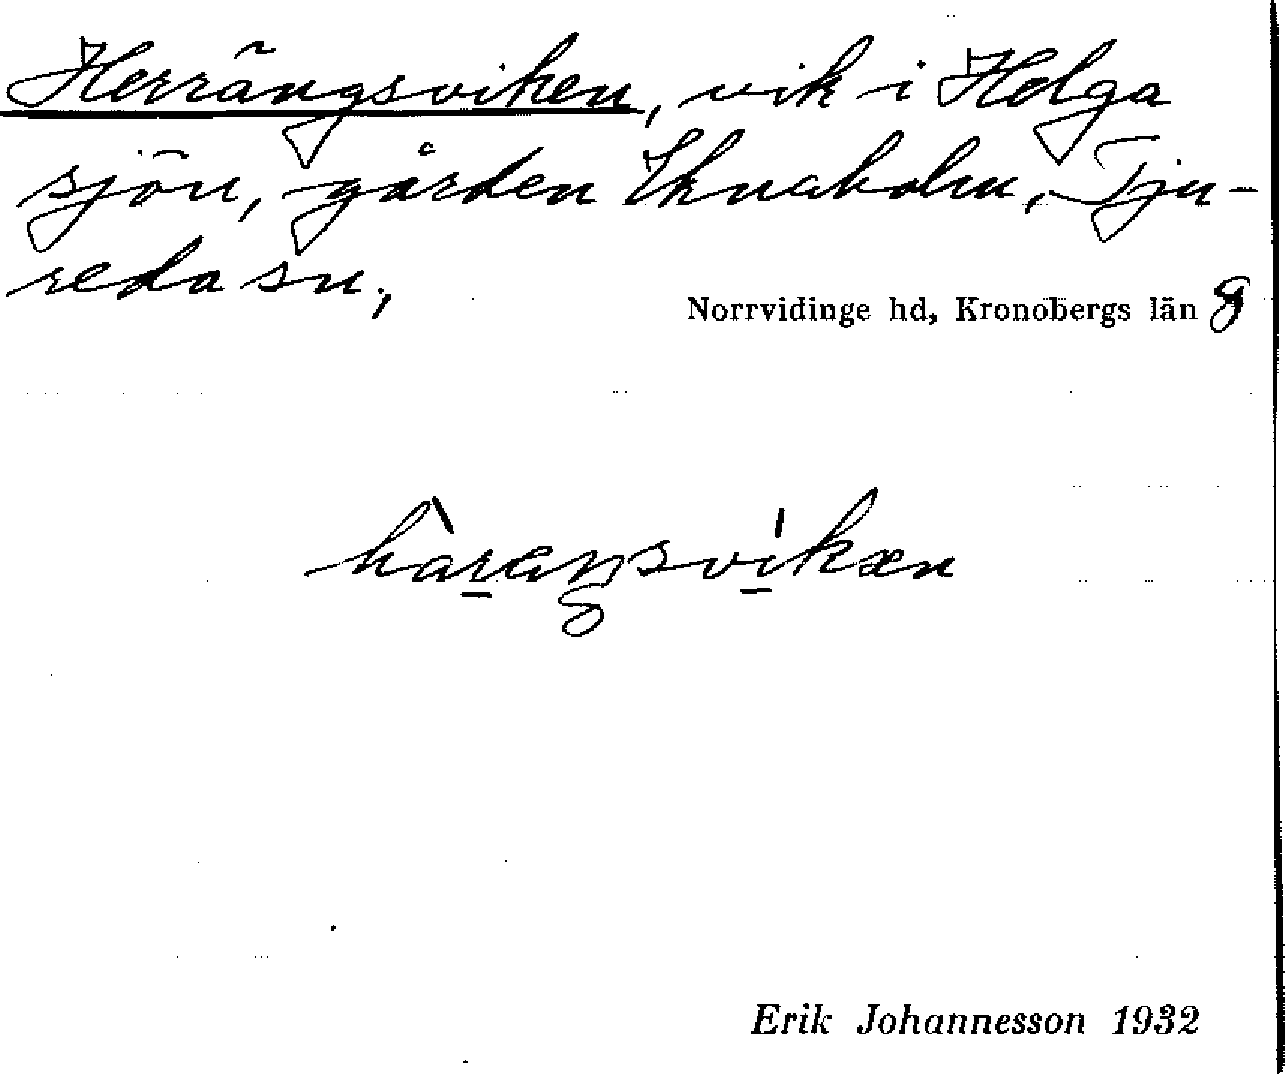 Herrängsviken, vik i Helga
sjön, gården Iknaholm, Tju-
reda sn,
Norrvidinge hd, Kronobergs län g
Erik Johannesson 1932